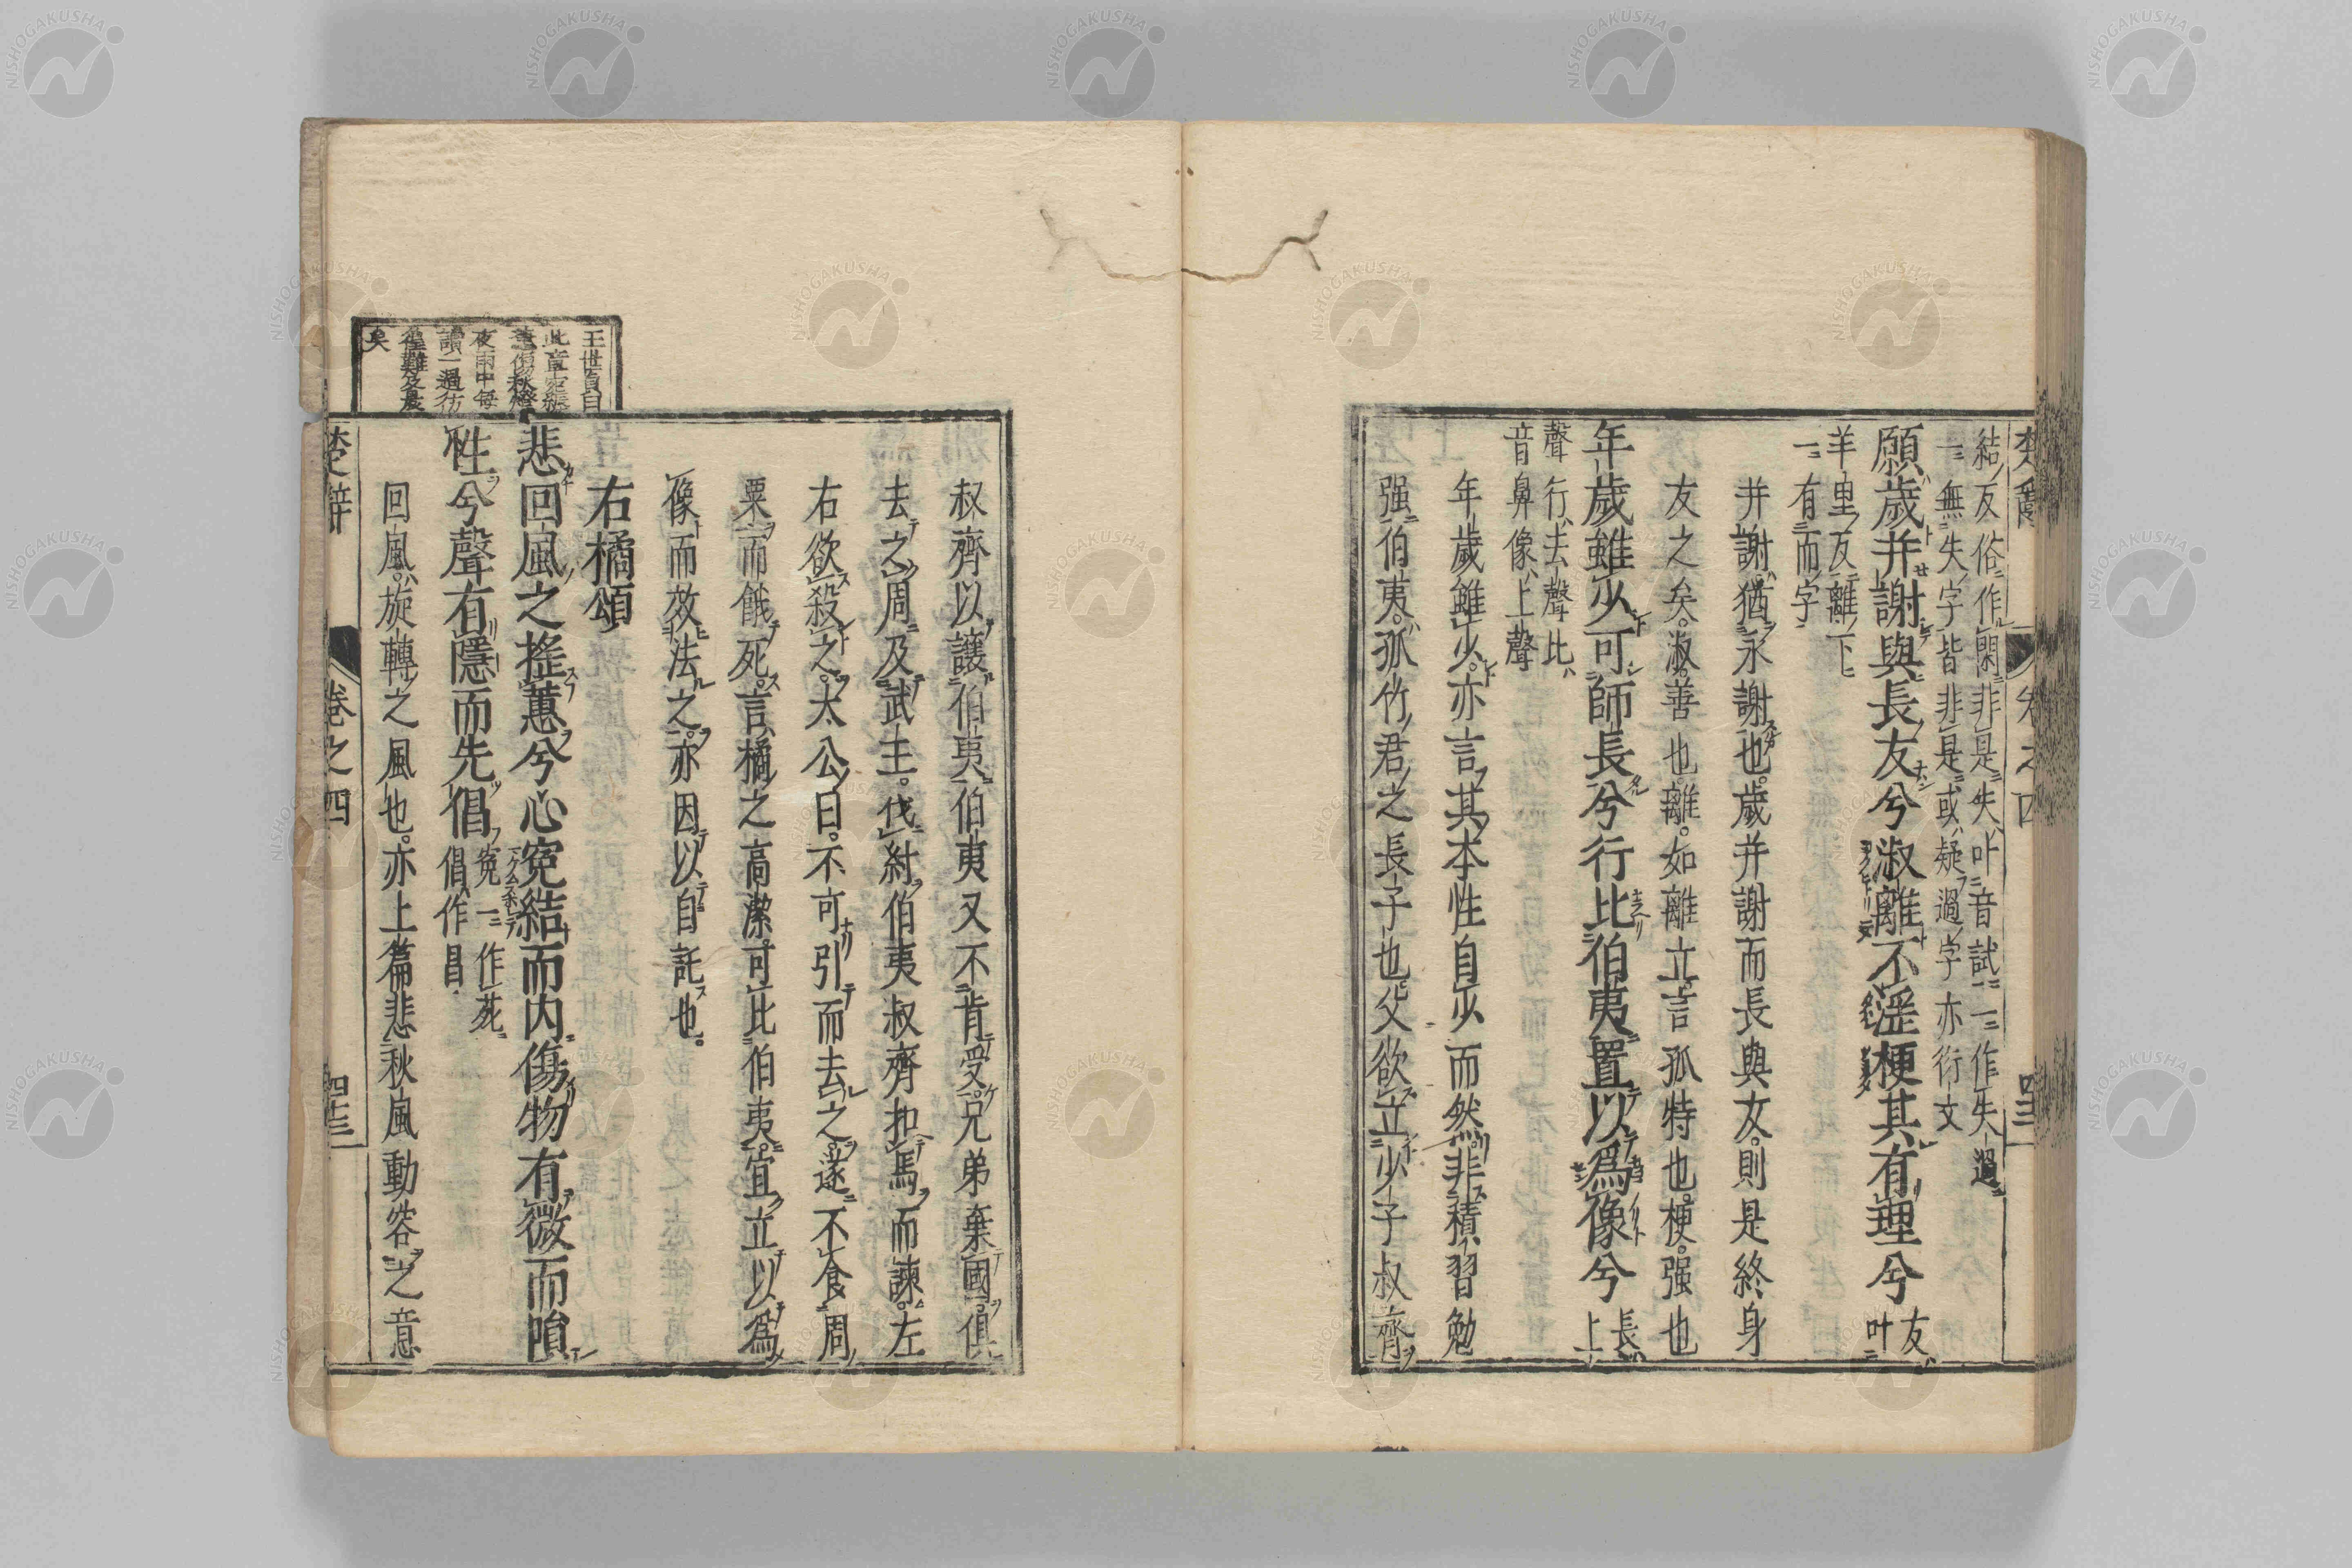 結反俗作閑非是失叶音試一作失過
一無失字皆非是或疑過字亦衍文
願歲并謝與長友兮淑離不淫梗其有理兮友叶
羊里反離下
一有而字
并謝猶永謝也歲并謝而長與友則是終身
友之矣淑善也離如離立言孤特也梗强也
年歲雖少可師長兮行比伯夷置以爲像兮長上
聲行去聲比
音鼻像上聲
年歲雖少亦言其本性自少而然非積習勉
强伯夷孤竹君之長子也父欲立少子叔齊
楚辭 卷之四
叔齊以讓伯夷伯夷又不肯受兄弟棄國俱
去之周及武王伐紂伯夷叔齊扣馬而諫左
右欲殺之太公曰不可引而去之遂不食周
粟而餓死言橘之高潔可比伯夷宜立以爲
像而效法之亦因以自託也
右橘頌
悲回風之搖蕙兮心寃結而内傷物有微而隕
性兮聲有隱而先倡寃一作菀
倡作昌
回風旋轉之風也亦上篇悲秋風動容之意
楚辭 卷之四
王世貞曰
此章
傷秋燈
夜雨中每
讀一過彷
徨難及晨
矣
NISHOGAKUSHA